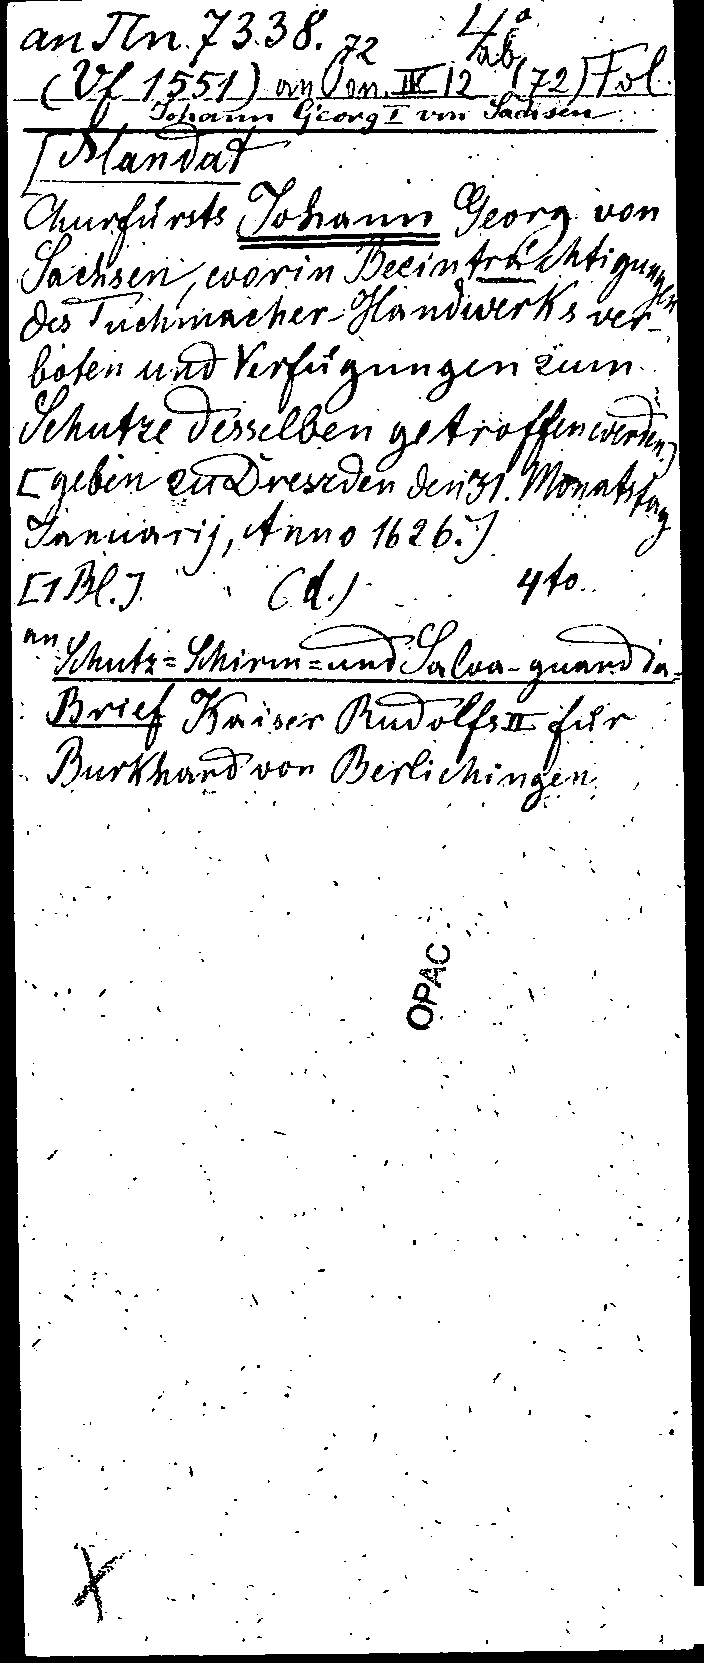 an Πn. 7338. 72 4°
(Vf 1551) an IV 12 ab (72) Fol.
Johann Georg I von Sachsen
[Mandat
Churfürsts Johann Georg von
Sachsen, worin Beeinträchtigungen
des Tuchmacher-Handwerks ver-
boten und Verfügungen zum
Schutze desselben getroffen werden.]
[geben zu Dreszden den 31. Monatstag
Januarij, Anno 1626.]
[1 Bl.] (d.) 4to.
an Schutz=Schirm=und Salva-guardia-
Brief Kaiser Rudolfs II für
Burkhard von Berlichingen
OPAC